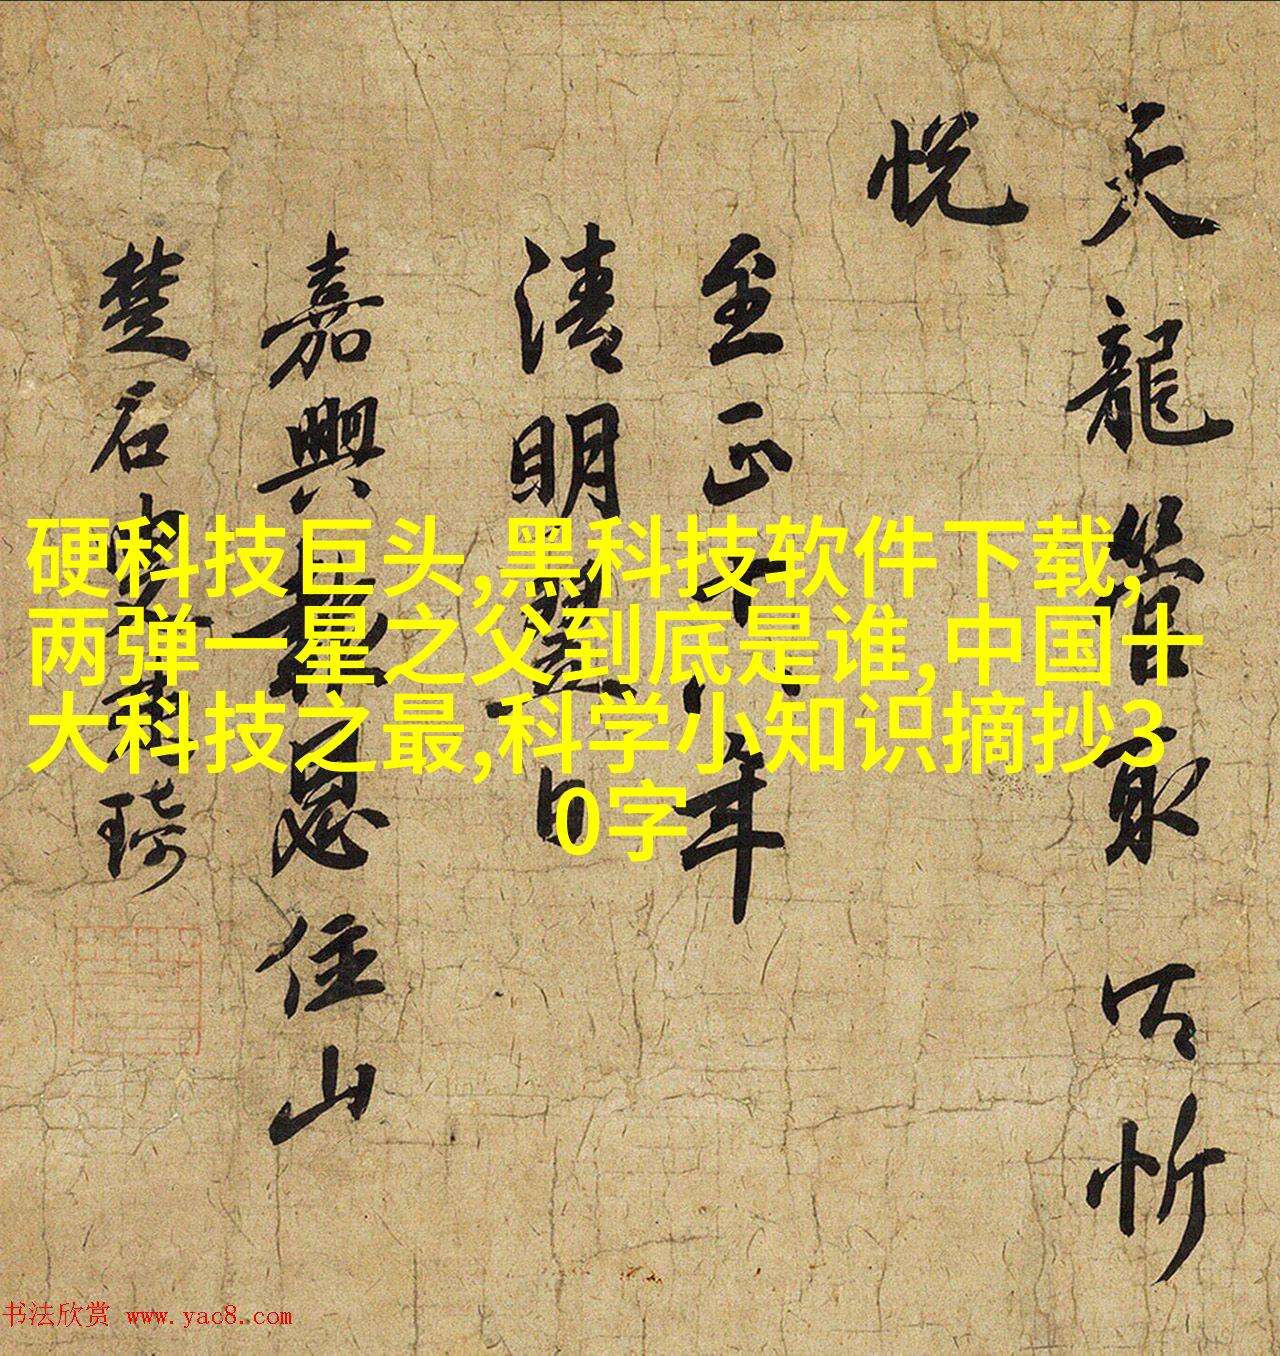 天龍皆取以忻
悦
至正十八年
清明翌日
嘉興報恩住山
楚石曳梵琦
硬科技巨头,黑科技软件下载,
两弹一星之父到底是谁,中国十
大科技之最,科学小知识摘抄3
0字
书法欣赏 www.yac8.com